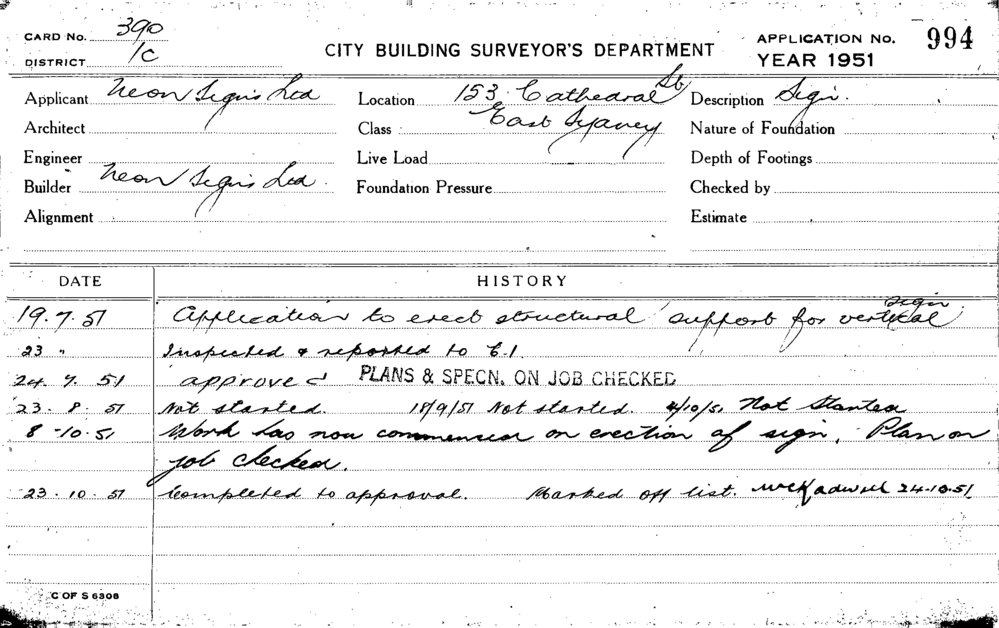 CARD No. 390
DISTRICT 1C
CITY BUILDING SURVEYOR'S DEPARTMENT
APPLICATION No. 994
YEAR 1951
Applicant Neon Signs Ltd
Location 153 Cathedral St
East Sydney
Description Sign.
Architect
Class
Nature of Foundation
Engineer
Live Load
Depth of Footings
Builder Neon Signs Ltd.
Foundation Pressure
Checked by
Alignment
Estimate
DATE HISTORY
19.7.51 Application to erect structural support for vertical sign
23 " Inspected & reported to C.I.
24.7.51 approved PLANS & SPECN. ON JOB CHECKED
23.8.51 Not started. 18/9/51 Not started. 4/10/51 Not Started
8-10-51 Work has now commenced on erection of sign. Plan on
job checked.
23.10.51 Completed to approval. Marked off list. 24-10-51
C OF S 6308